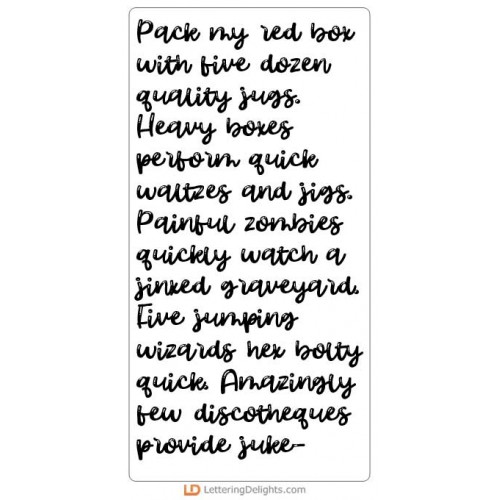 Pack my red box
with five dozen
quality jugs.
Heavy boxes
perform quick
waltzes and jigs.
Painful zombies
quickly watch a
jinxed graveyard.
Five jumping
wizards hex bolty
quick. Amazingly
few discotheques
provide juke-
LD LetteringDelights.com